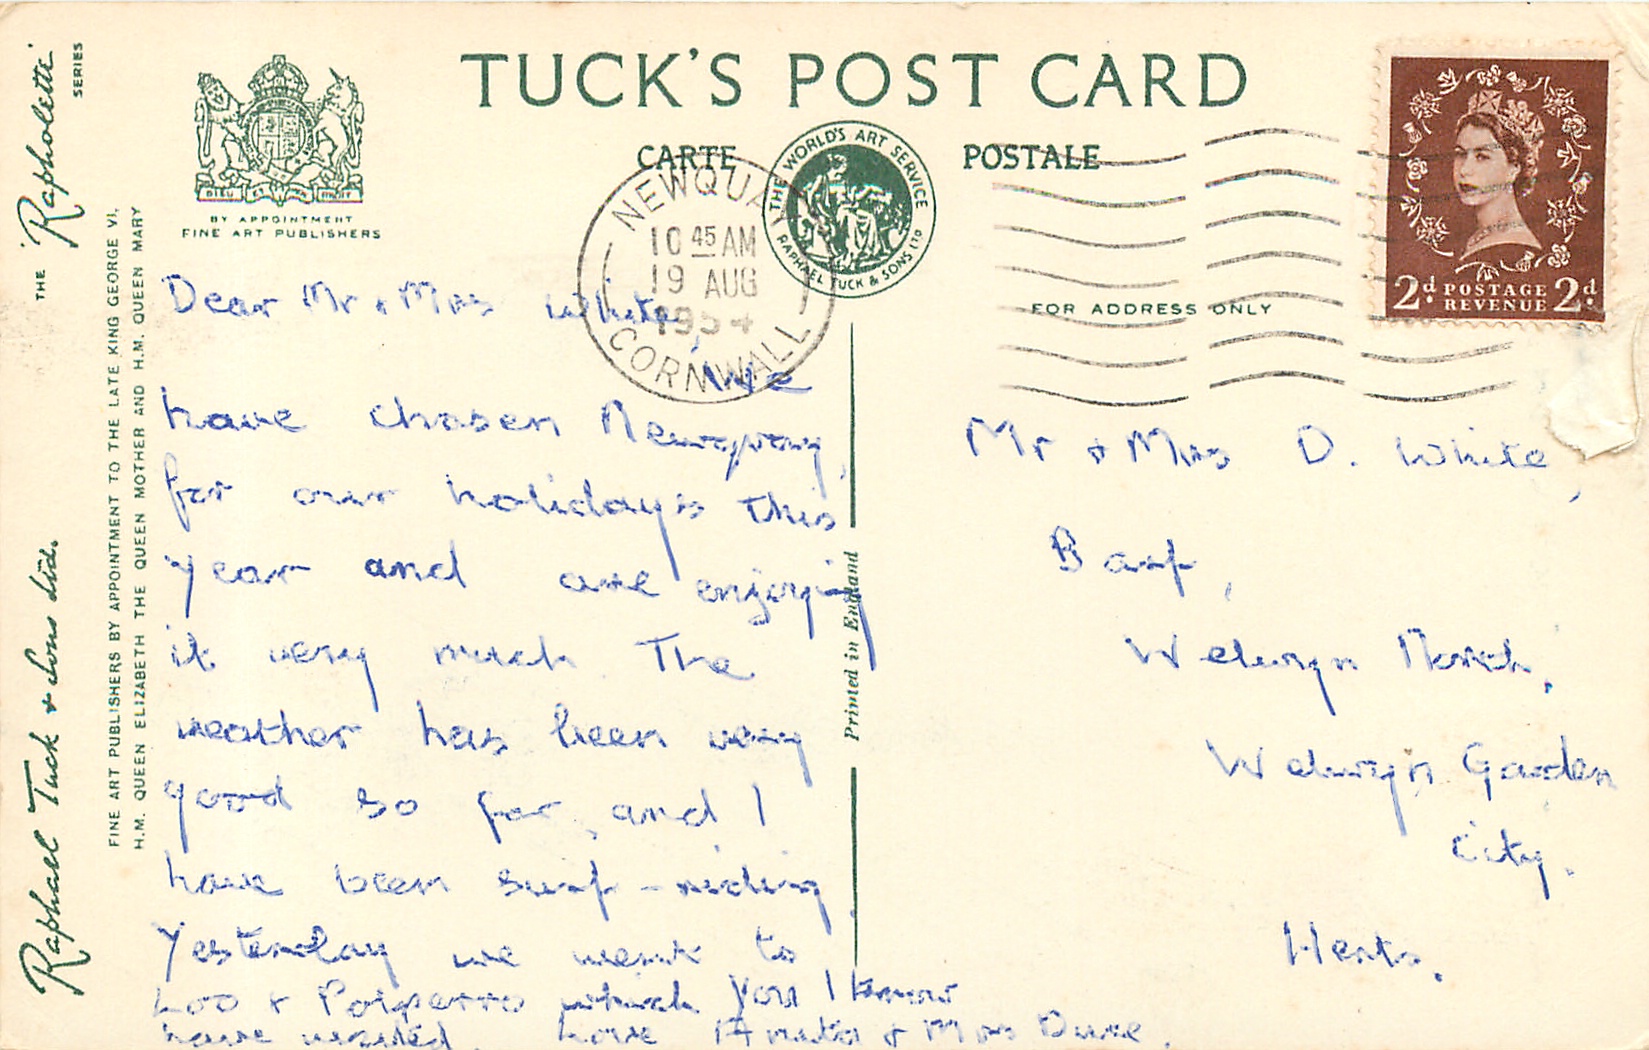 TUCK'S POST CARD
CARTE POSTALE
THE WORLD'S ART SERVICE
RAPHAEL TUCK & SONS LTD
BY APPOINTMENT
FINE ART PUBLISHERS
DIEU ET MON DROIT
THE "Rapholette" SERIES
Raphael Tuck & Sons Ltd.
FINE ART PUBLISHERS BY APPOINTMENT TO THE LATE KING GEORGE VI,
H.M. QUEEN ELIZABETH THE QUEEN MOTHER AND H.M. QUEEN MARY
NEWQUAY
10 45 AM
19 AUG
1954
CORNWALL
FOR ADDRESS ONLY
2d POSTAGE REVENUE 2d
Printed in England
Dear Mr & Mrs White,
We
have chosen Newquay,
for our holidays this
year and are enjoying
it very much The
weather has been very
good so far, and I
have been surf-riding
Yesterday we went to
Loo & Polperro which you I know
have visited. love Anita & Mrs
Mr & Mrs D. White,
Welwyn North,
Welwyn Garden
City.
Herts.